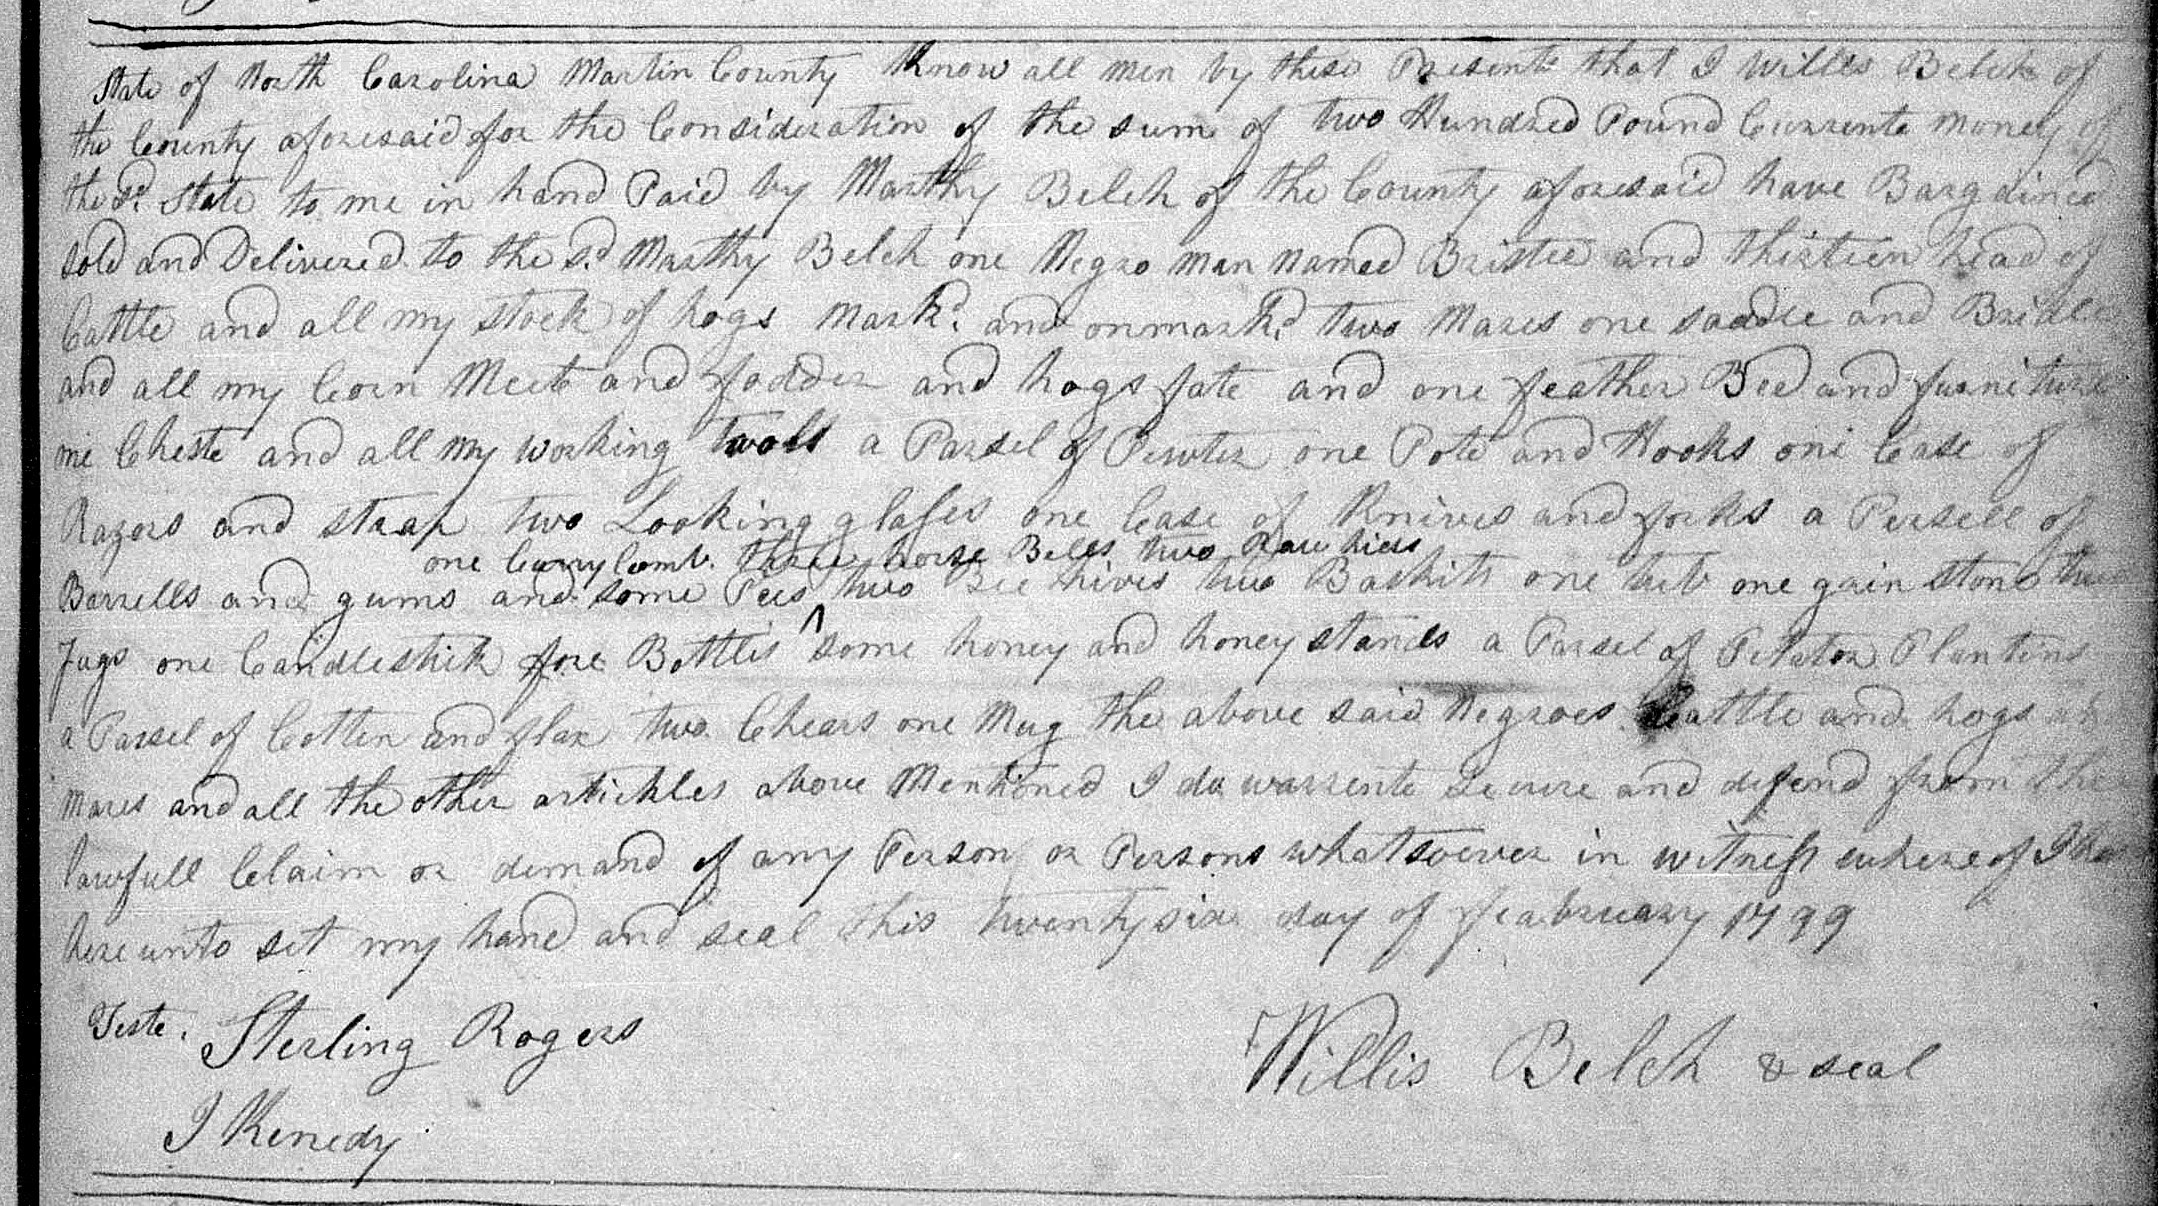 State of North Carolina Martin County Know all men by these Presents that I Willis Belch of
the County aforesaid for the Consideration of the sum of two Hundred Pound Currente money of
the Sd. State to me in hand Paid by Marthy Belch of the County aforesaid have Bargained
sold and Delivered to the sd. Marthy Belch one Negro man named Bristee and thirteen head of
Cattle and all my stock of hogs mark'd. and onmark'd. two Mares one saddle and Bridle
and all my Corn Meet and fodder and hogs fate and one feather Bed and furniture
one Cheste and all my working twols a Parsel of Pewter one Pote and Hooks one Case of
Razors and strap two Looking glases one Case of Knives and forks a Persell of
one Curry Comb. three horse Bells two Raw hides
Barrells and gums and some Pees ^ two Bee hives two Baskits one tub one gain stone two
Jugs one Candlestick fore Bottles some honey and honey stands a Parsel of Petator Plantens
a Parsel of Cotten and flax two Chears one Mug the above said Negroes Cattle and hogs
mares and all the other artickles above Mentioned I do warrente secure and defend from the
lawfull Claim or demand of any Person or Persons whatsoever in witness whereof I have
hereunto set my hand and seal this twenty six day of feabruary 1799
Teste. Sterling Rogers
Willis Belch & seal
J Kenedy